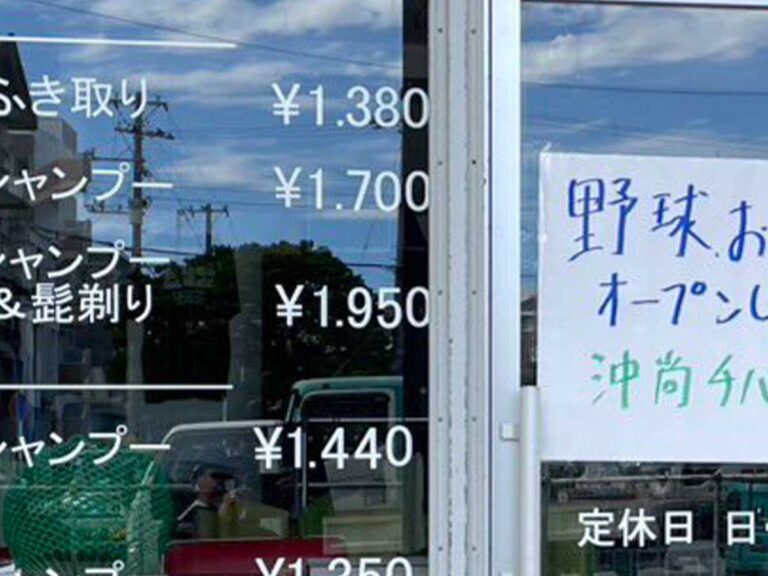 ふき取り ¥1.380
シャンプー ¥1.700
シャンプー
&髭剃り ¥1.950
シャンプー ¥1.440
ャンプー ¥1.350
野球.お
オープンし
沖尚チバ
定休日 日・